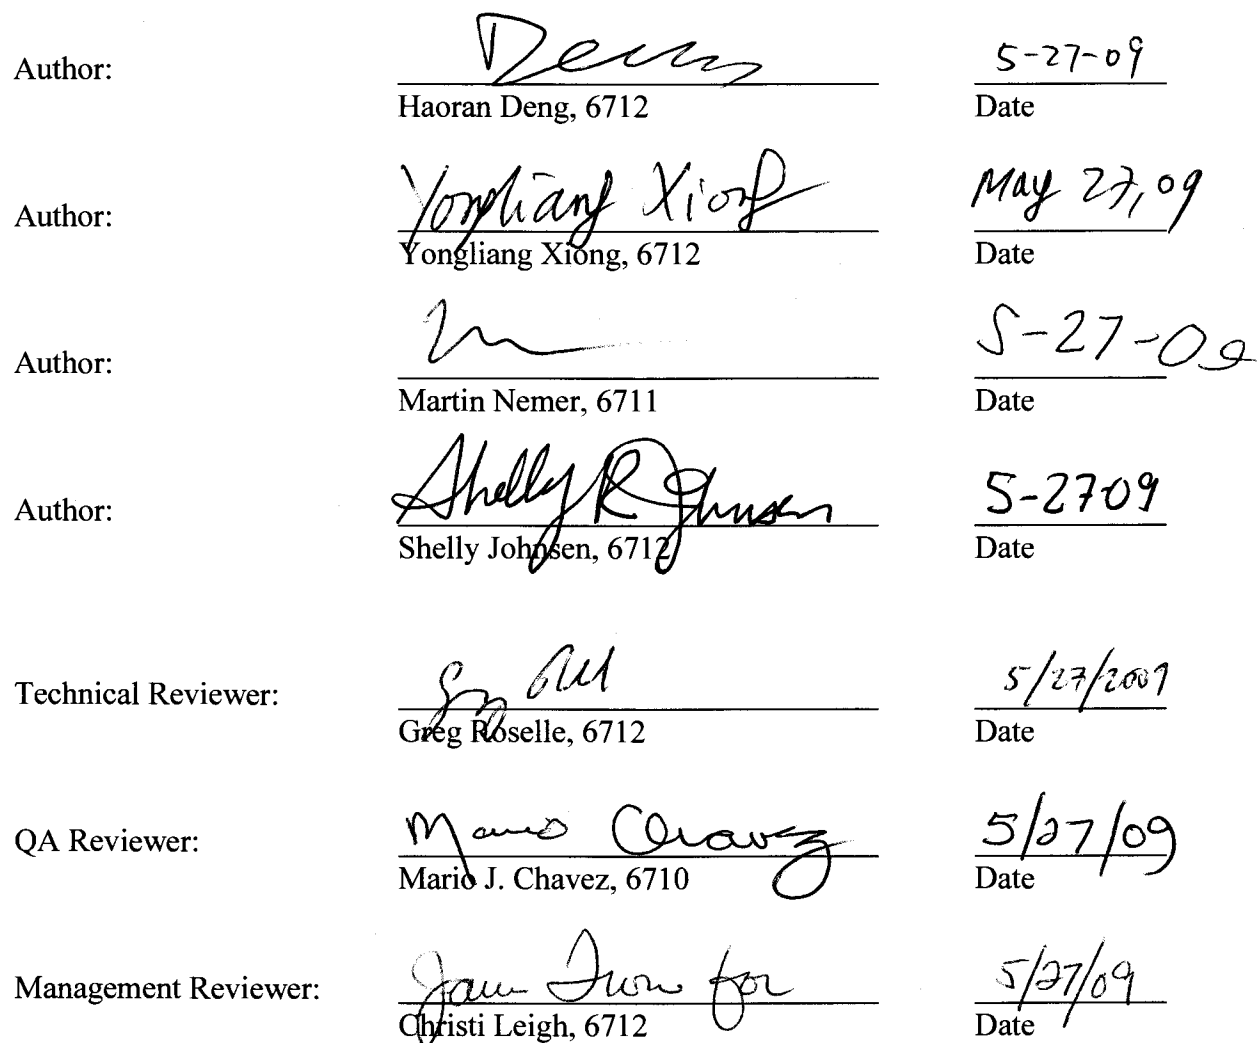 Author: Deng 5-27-09
Haoran Deng, 6712 Date
Author: Yongliang Xiong May 27, 09
Yongliang Xiong, 6712 Date
Author: 5-27-09
Martin Nemer, 6711 Date
Author: Shelly R Johnsen 5-2709
Shelly Johnsen, 6712 Date
Technical Reviewer: Greg 5/27/2009
Greg Roselle, 6712 Date
QA Reviewer: Mario Chavez 5/27/09
Mario J. Chavez, 6710 Date
Management Reviewer: for 5/27/09
Christi Leigh, 6712 Date